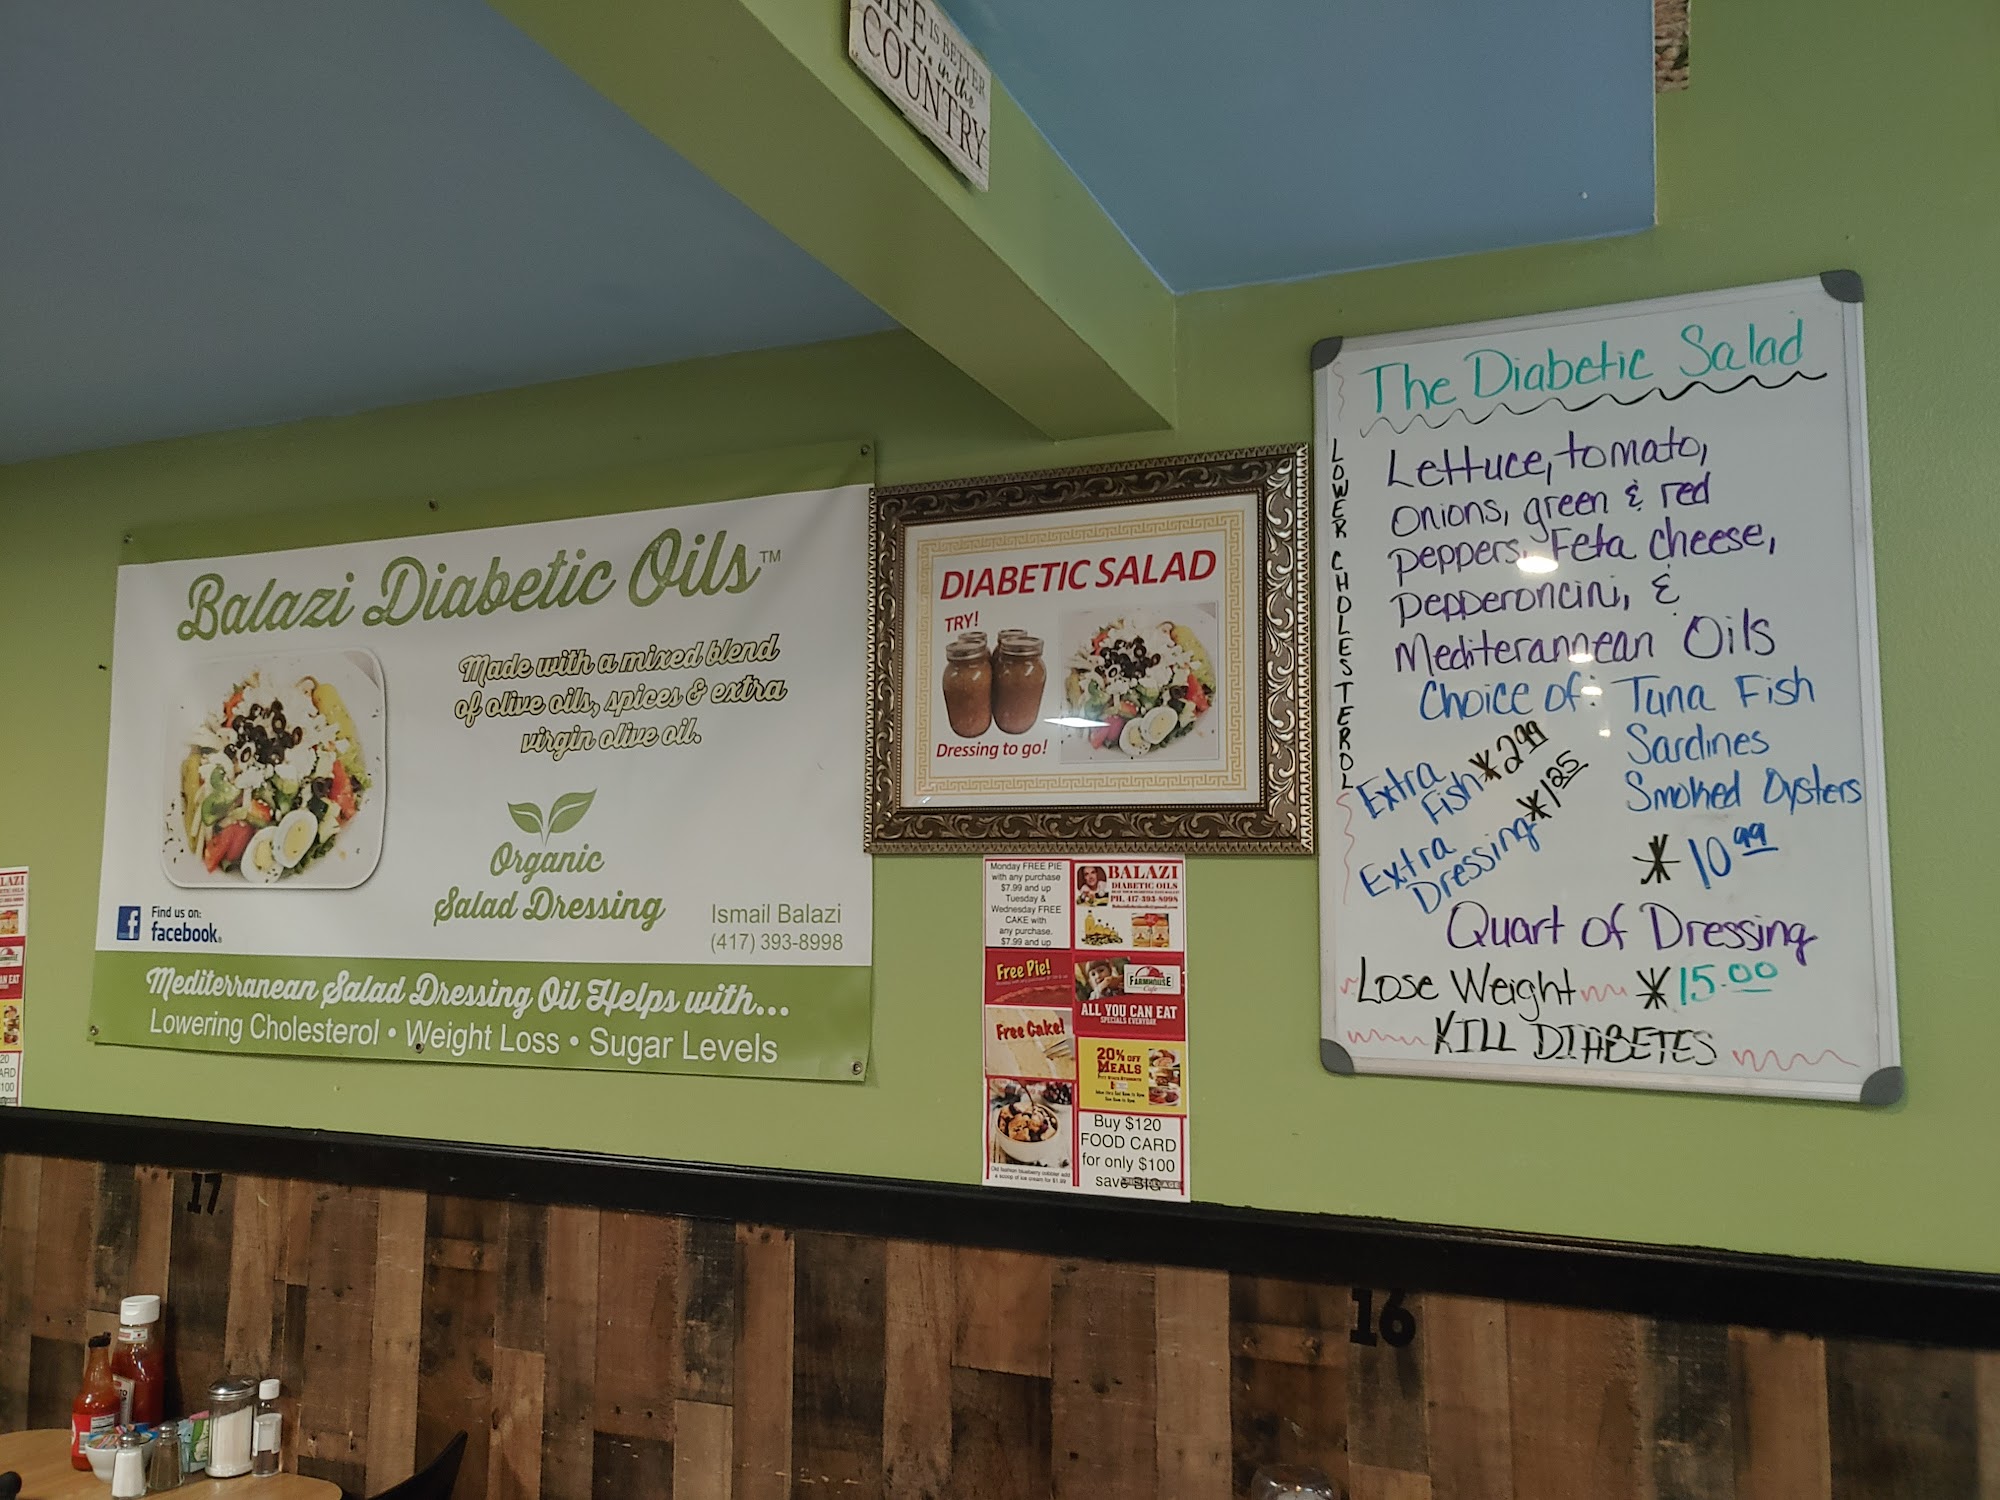 LIFE IS BETTER
in the
COUNTRY
Balazi Diabetic Oils™
Made with a mixed blend
of olive oils, spices & extra
virgin olive oil.
Organic
Salad Dressing
Find us on:
facebook
Ismail Balazi
(417) 393-8998
Mediterranean Salad Dressing Oil Helps with...
Lowering Cholesterol • Weight Loss • Sugar Levels
DIABETIC SALAD
TRY!
Dressing to go!
Monday FREE PIE
with any purchase
$7.99 and up
Tuesday &
Wednesday FREE
CAKE with
any purchase.
$7.99 and up
Free Pie!
Free Cake!
Old fashion blueberry cobbler add
a scoop of ice cream for $1.99
BALAZI
DIABETIC OILS
PH. 417-393-8998
FARMHOUSE
Cafe
ALL YOU CAN EAT
SPECIALS EVERYDAY
20% OFF
MEALS
Buy $120
FOOD CARD
for only $100
save BIG
The Diabetic Salad
LOWER CHOLESTEROL
Lettuce, tomato,
onions, green & red
peppers, Feta cheese,
pepperoncini, &
Mediterannean Oils
Choice of: Tuna Fish
Sardines
Smoked Oysters
Extra
Fish * 2.99
Extra
Dressing * 1.25
* 10.99
Quart of Dressing
Lose Weight * 15.00
KILL DIABETES
LAZI
17
16